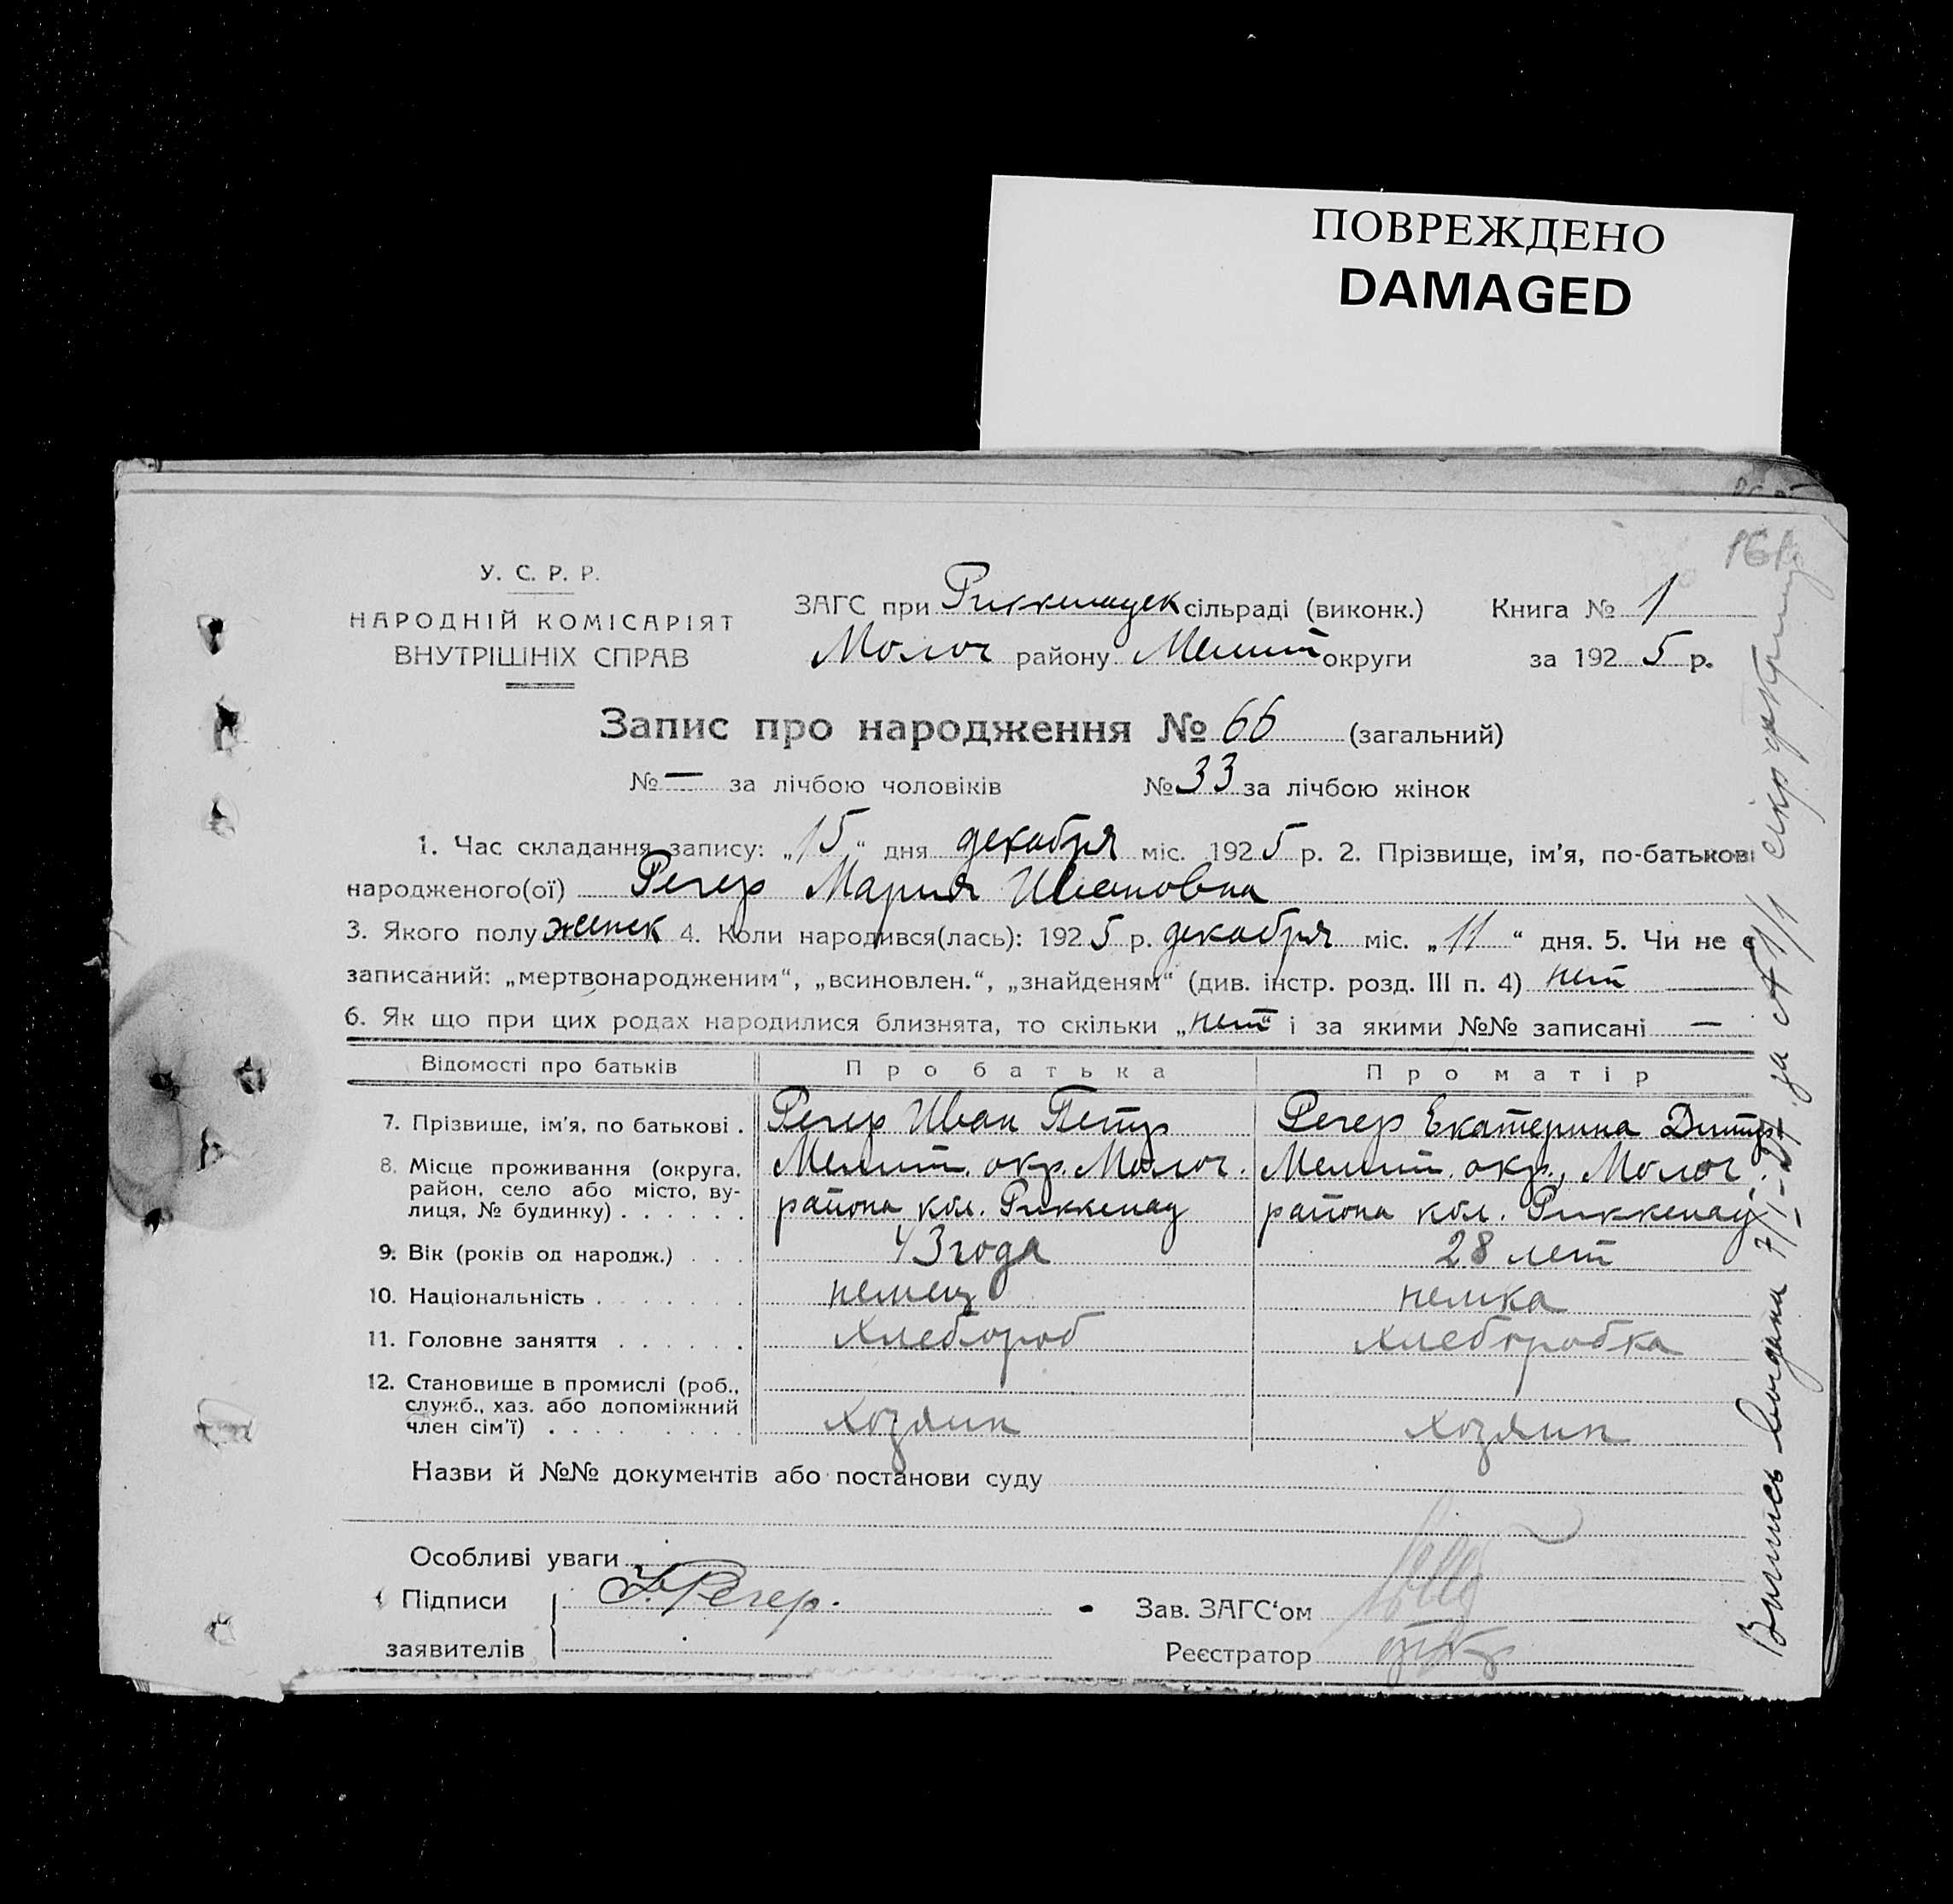 ПОВРЕЖДЕНО
DAMAGED
У. С. Р. Р.
НАРОДНІЙ КОМІСАРІЯТ
ВНУТРІШНІХ СПРАВ
ЗАГС при Риккенауск сільраді (виконк.)
Молоч району Мелит округи
Книга № 1
за 1925 р.
Запис про народження № 66 (загальний)
№ — за лічбою чоловіків № 33 за лічбою жінок
1. Час складання запису: „15“ дня декабря міс. 1925 р. 2. Прізвище, ім’я, по-батькові
народженого(ої) Регер Мария Ивановна
3. Якого полу женск 4. Коли народився(лась): 1925 р. декабря міс. „11“ дня. 5. Чи не є
записаний: „мертвонародженим“, „всиновлен.“, „знайденям“ (див. інстр. розд. III п. 4) нет
6. Як що при цих родах народилися близнята, то скільки „нет“ і за якими №№ записані —
Відомості про батьків Про батька Про матір
7. Прізвище, ім’я, по батькові . Регер Иван Петр Регер Екатерина Дмитр
8. Місце проживання (округа, район, село або місто, вулиця, № будинку) . . . . . .
Мелит. окр. Молоч. района кол. Риккенау
Мелит. окр., Молоч. района кол. Риккенау
9. Вік (років од народж.) . . . 43 года 28 лет
10. Національність . . . . . . . . немец немка
11. Головне заняття . . . . . . хлебороб хлеборобка
12. Становище в промислі (роб., служб., хаз. або допоміжний член сім’ї) . . . . . . . . . хозяин хозяин
Назви й №№ документів або постанови суду
Особливі уваги
Підписи
заявителів
Я. Регер.
Зав. ЗАГС‘ом
Реєстратор
Выпись выдана 7/I-27 за № 1/1